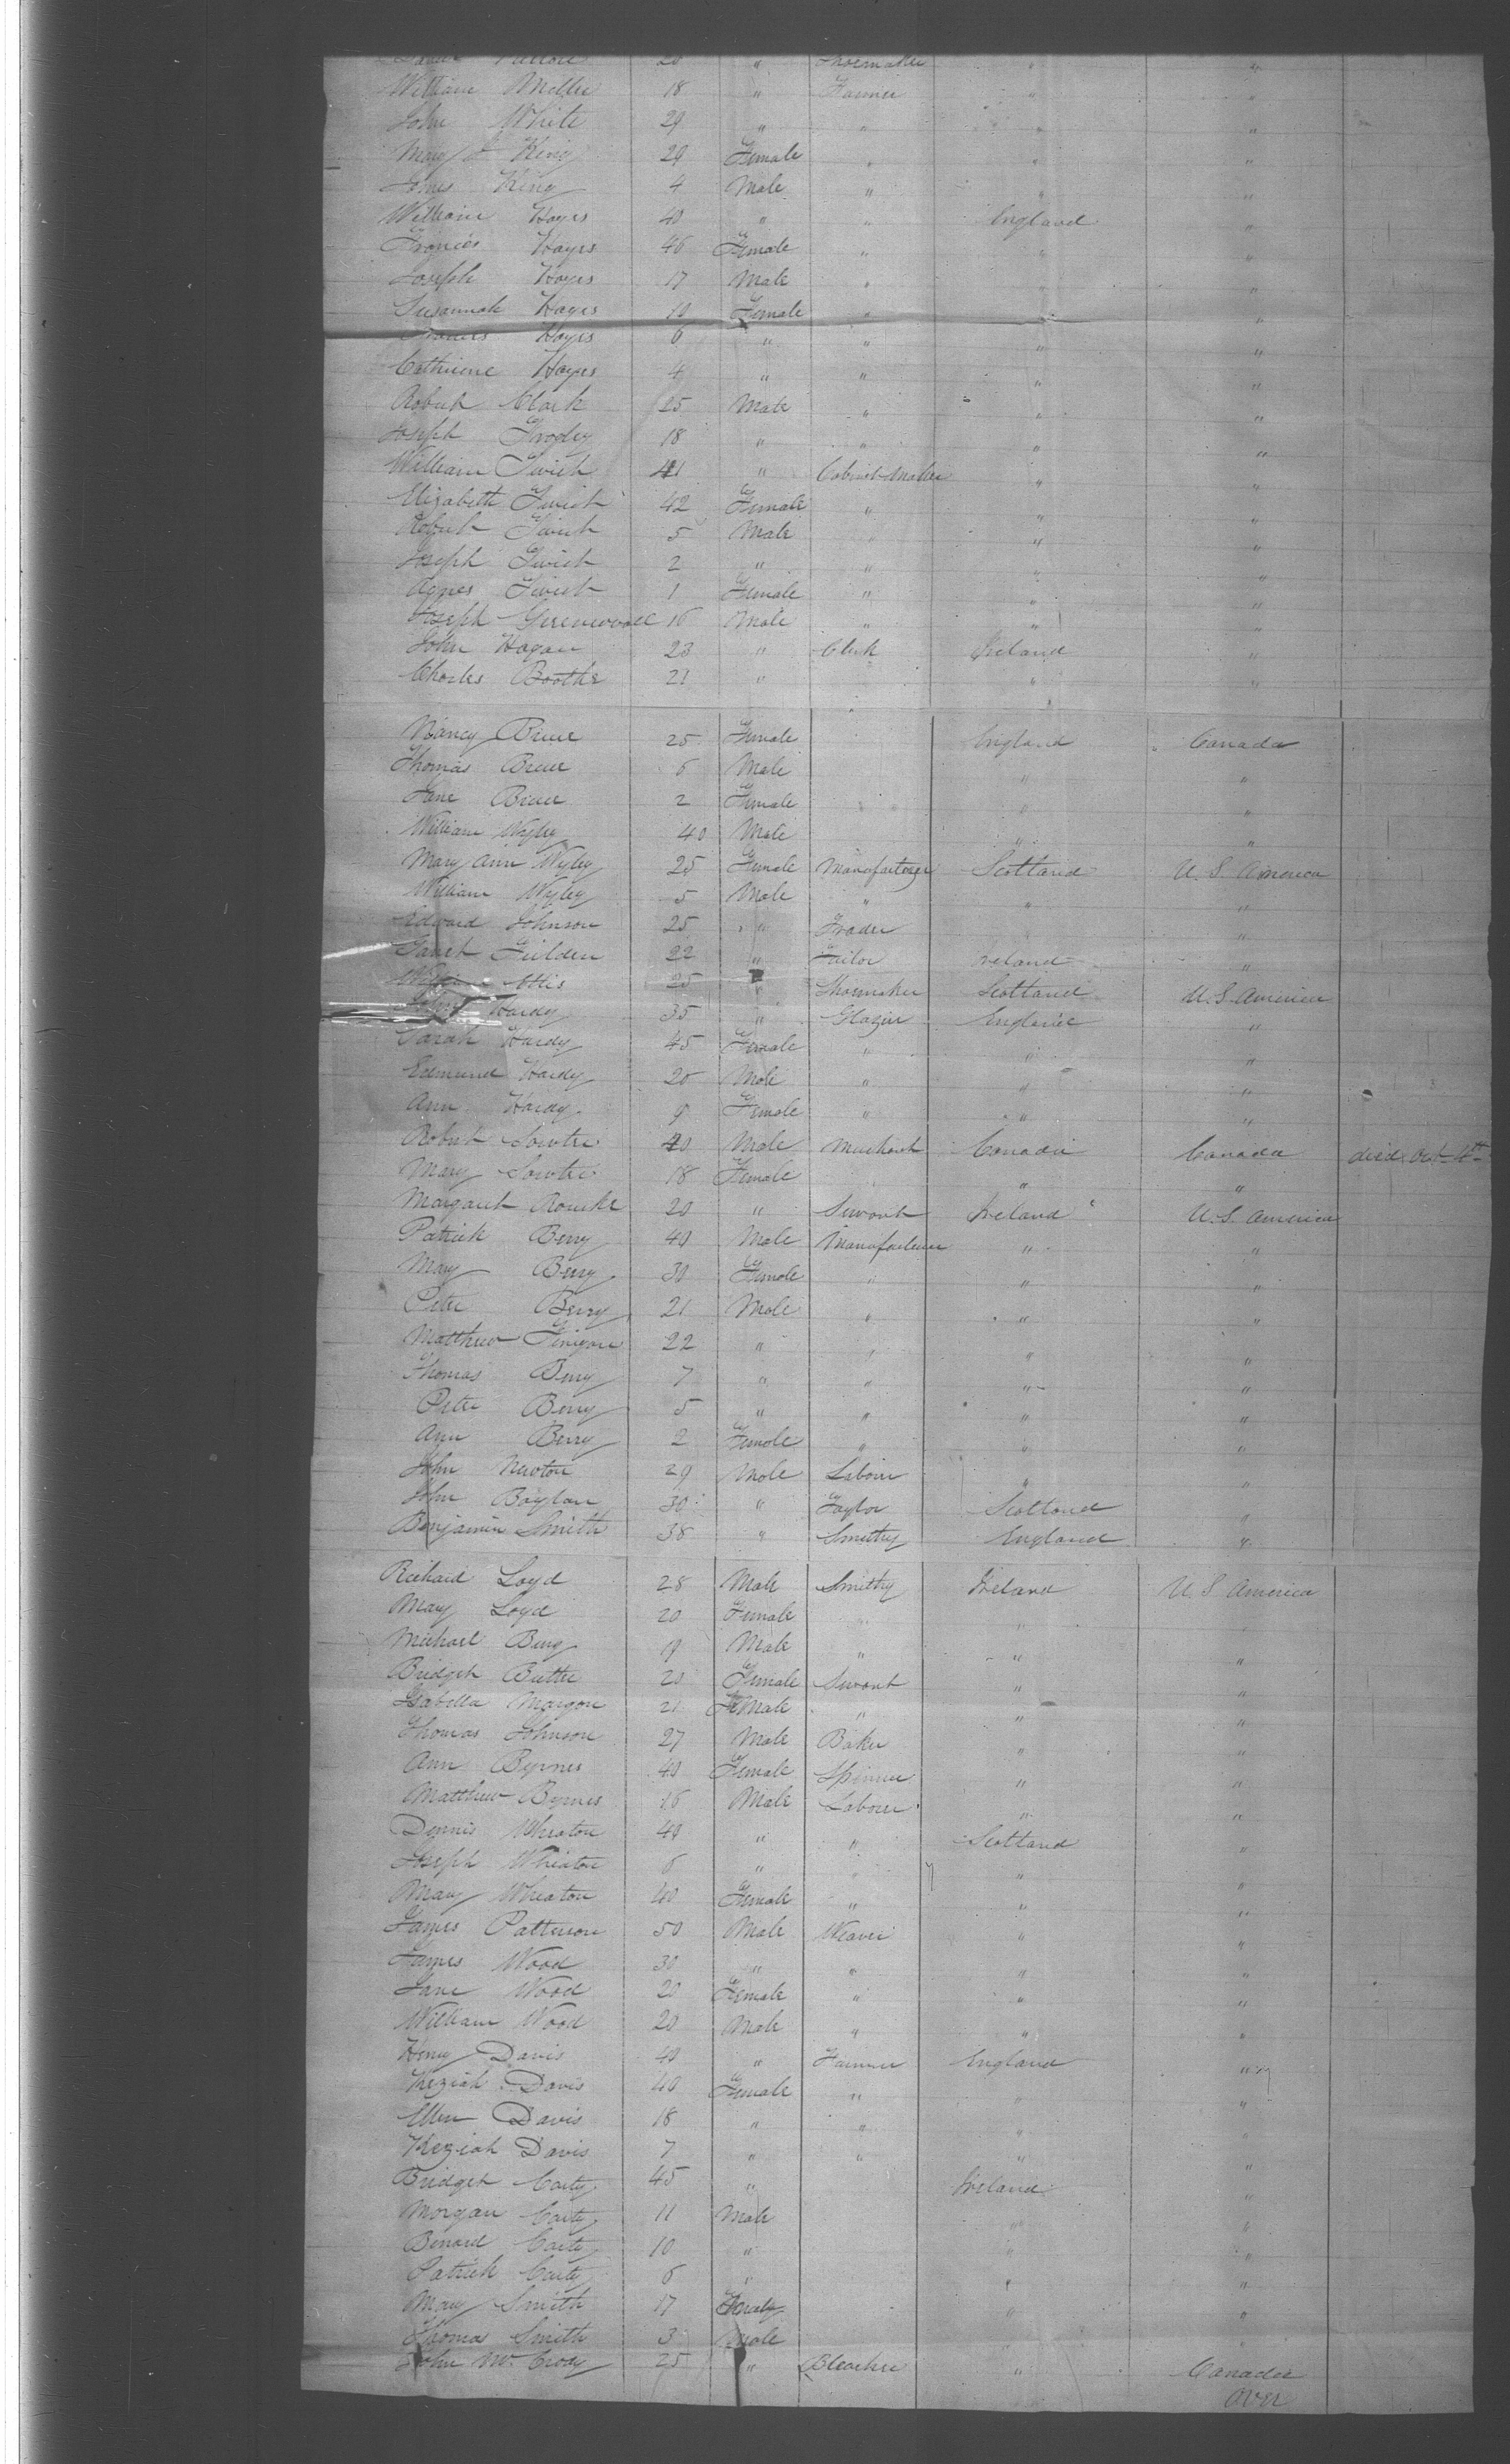 20 " Shoemaker " "
William Miller 18 " Farmer " "
John White 29 " " " "
Mary J King 29 Female " " "
James King 4 Male " " "
William Hayes 40 " " England "
Frances Hayes 46 Female " " "
Joseph Hayes 17 Male " " "
Susannah Hayes 10 Female " " "
Frances Hayes 6 " " " "
Cathriene Hayes 4 " " " "
Robert Clark 25 Male " " "
Joseph 18 " " " "
William Swich 41 " Cabinet Maker " "
Elizabeth 42 Female " " "
Robert 5 Male " " "
Joseph 2 " " " "
Agnes 1 Female " " "
Joseph 16 Male " " "
John Hogan 23 " Clerk Ireland "
Charles Boothe 21 " " "
Nancy 25 Female England Canada
Thomas 6 Male " "
Jane 2 Female " "
William Wyley 40 Male " "
Mary Ann Wyley 25 Female Manufacturer Scotland U.S. America
William Wyley 5 Male " " "
Edward Johnson 25 " Trader " "
Garet Fulden 22 " Tailor Ireland "
25 " Shoemaker Scotland U.S America
John Hardy 35 " Glazier England "
Sarah Hardy 45 Female " " "
Edmund Hardy 20 Male " " "
Ann Hardy 9 Female " " "
Robert Sowter 40 Male Merchant Canada Canada died Oct 4th
Mary Sowter 18 Female " " "
Margaret Rourke 20 " Servant Ireland U.S. America
Patrick Berry 40 Male Manufacturer " "
Mary Berry 30 Female " " "
Peter Berry 21 Male " " "
Matthew Finigan 22 " " " "
Thomas Berry 7 " " " "
Peter Berry 5 " " " "
Ann Berry 2 Female " " "
John Newton 29 Male Laborer " "
John Boylan 30 " Taylor Scotland "
Benjamin Smith 38 " Smithy England "
Richard Loyd 28 Male Smithy Ireland U S America
Mary Loyd 20 Female " " "
Michael 9 Male " " "
Bridget Butler 20 Female Servant " "
Isabella Morgan 21 FeMale " " "
Thomas Johnson 27 Male Baker " "
Ann Byrnes 40 Female Spinner " "
Matthew Byrnes 16 Male Laborer " "
Dennis Wheaton 40 " " Scotland "
Joseph Wheaton 6 " " " "
Mary Wheaton 40 Female " " "
James Patterson 50 Male Weaver " "
James Wood 30 " " " "
Jane Wood 20 Female " " "
William Wood 20 Male " " "
Henry Davis 40 " Farmer England "
Keziah Davis 40 Female " " "
Ellen Davis 18 " " " "
Keziah Davis 7 " " " "
Bridget Carty 45 " Ireland "
Morgan Carty 11 Male " "
Benard Carty 10 " " "
Patrick Carty 6 " " "
Mary Smith 17 Female " "
Thomas Smith 3 Male " "
John Mc Crody 25 " Bleacher " Canada
OVER